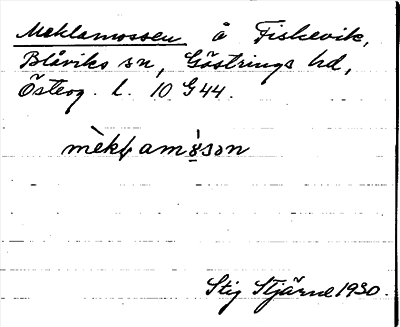 Meklamossen å Fiskevik,
Blåviks sn, Göstrings hd,
Österg. l. 10 G 44.
mèkɫamɷ̀sən
Stig Stjärne 1930.